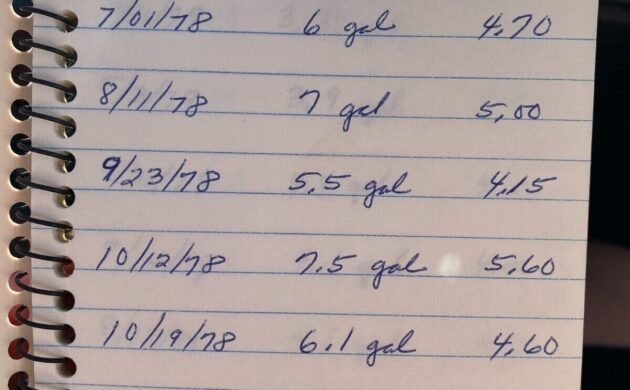 7/01/78 6 gal 4.70
8/11/78 7 gal 5.00
9/23/78 5.5 gal 4.15
10/12/78 7.5 gal 5.60
10/19/78 6.1 gal 4.60